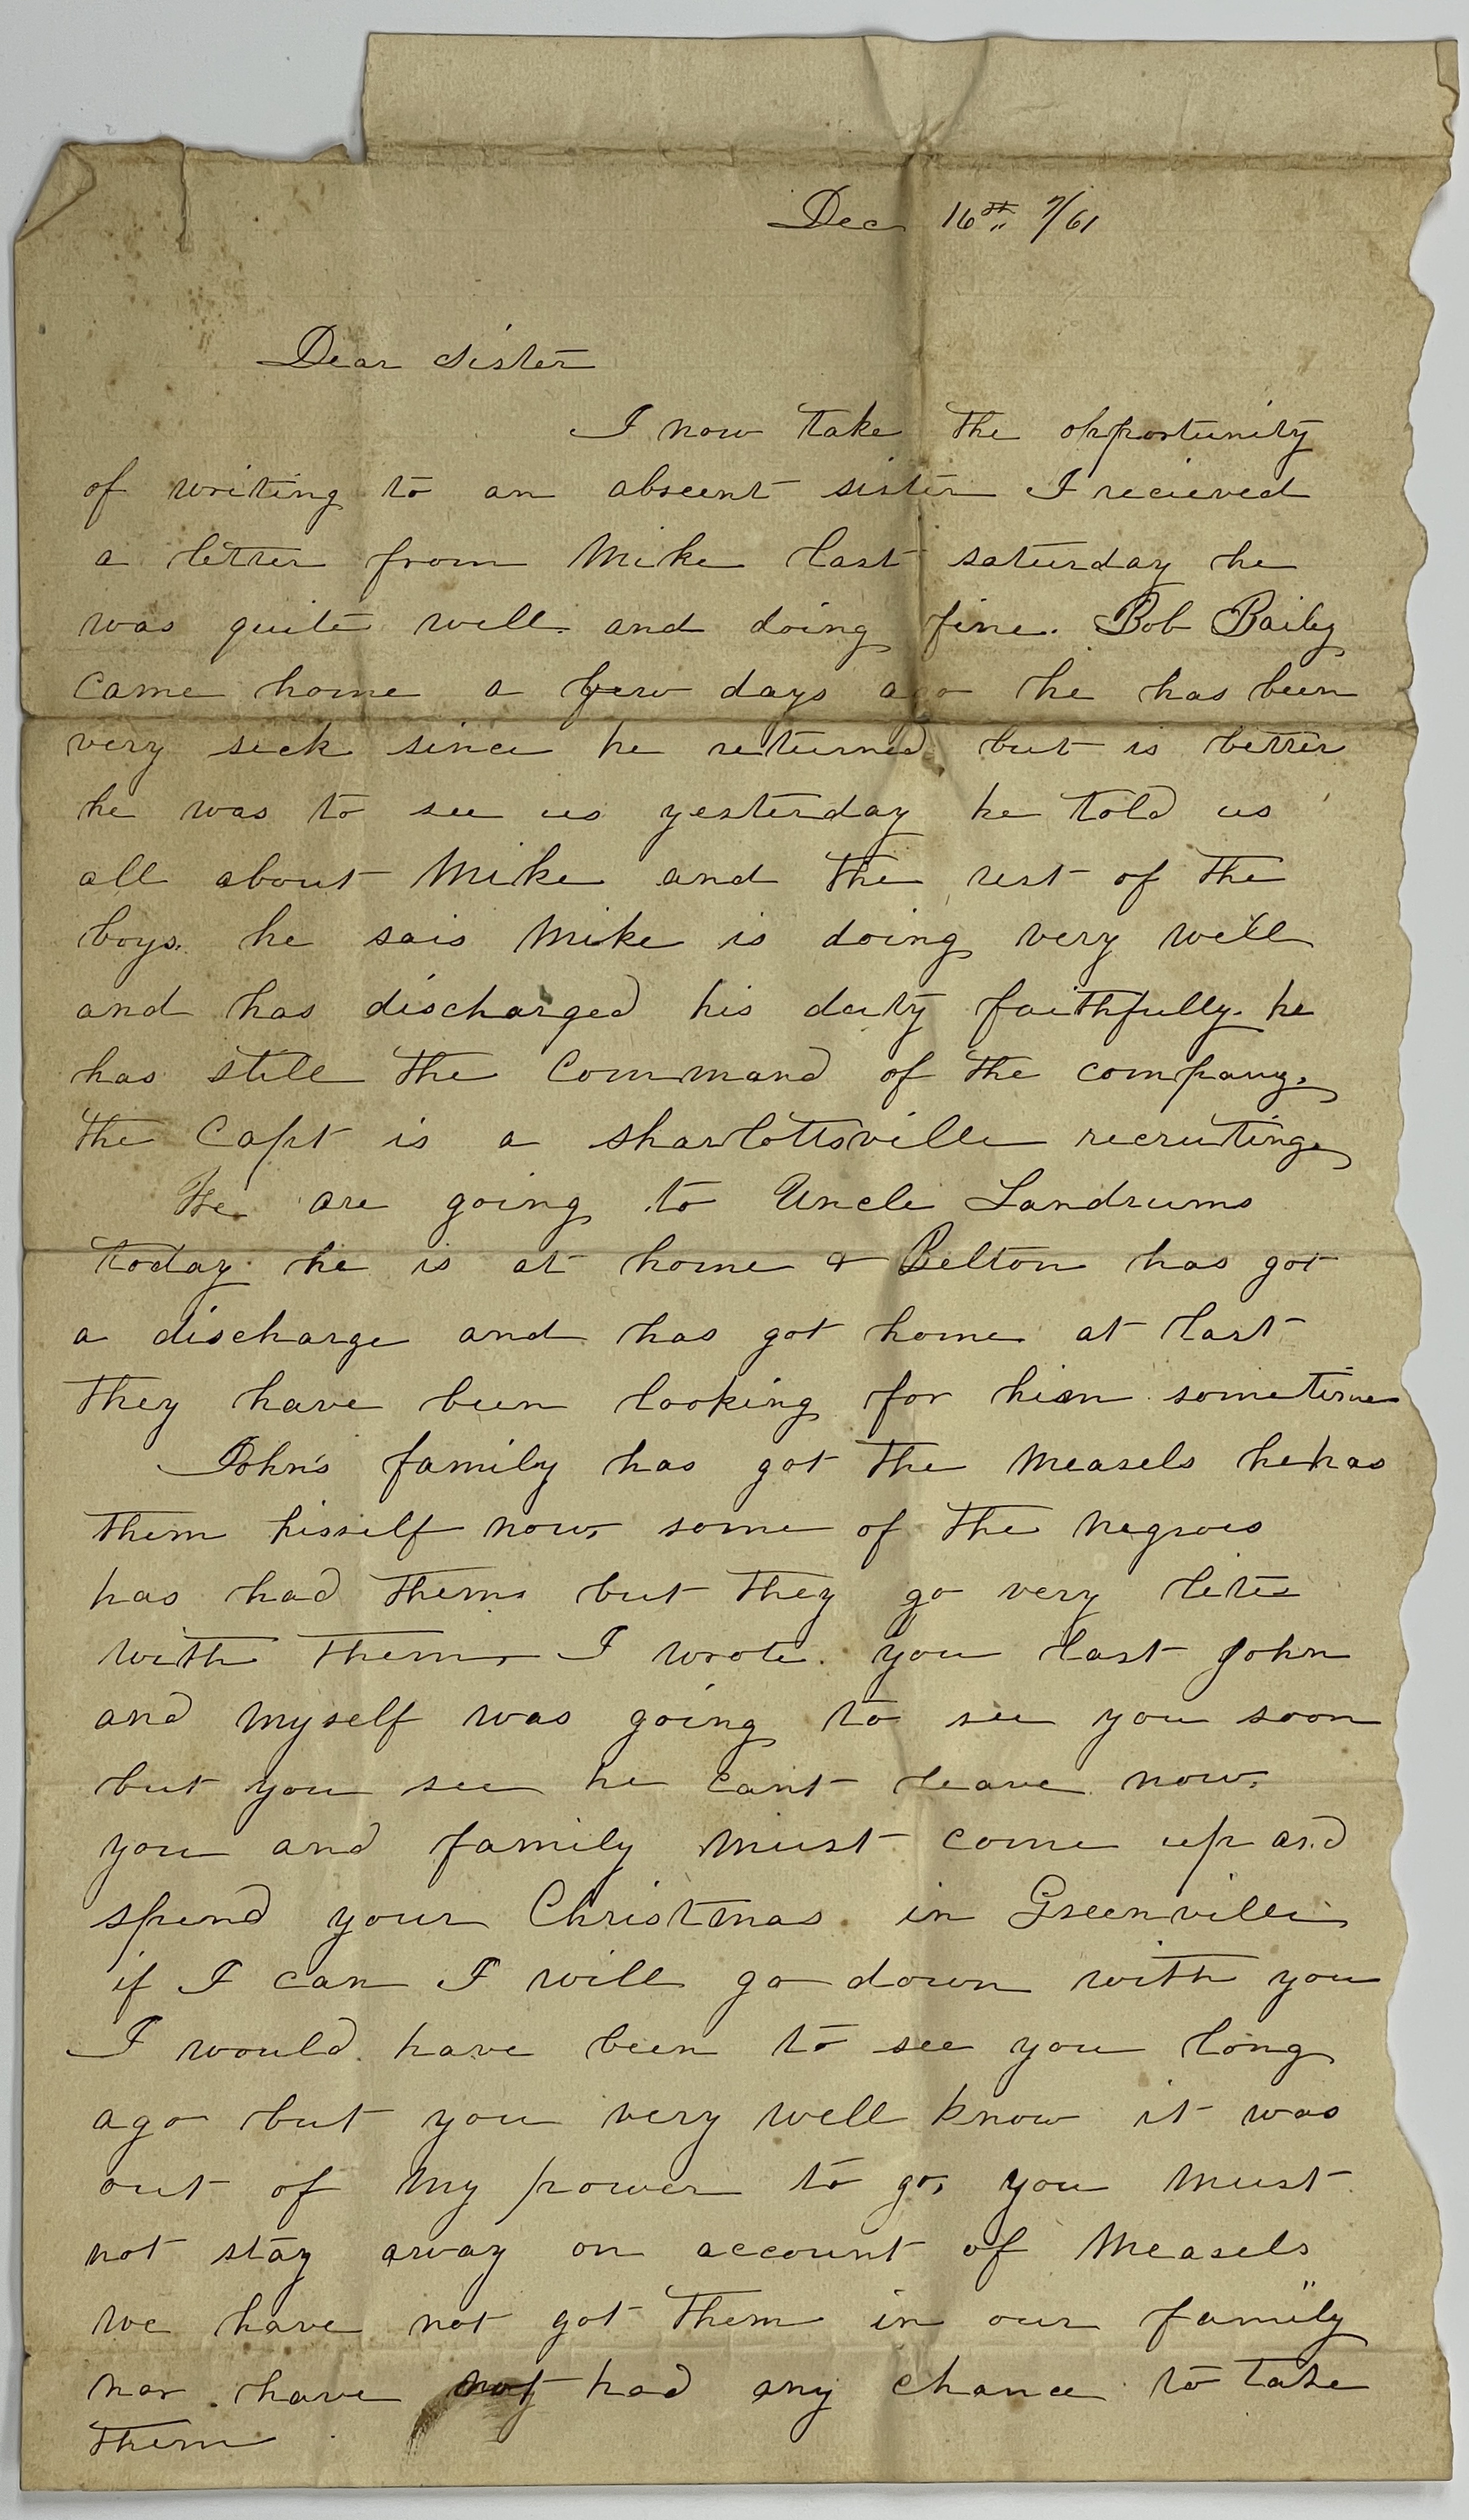 Dec 16th "/61
Dear sister
I now take the opportunity
of writing to an abscent sister I recieved
a letter from Mike last saturday he
was quite well. and doing fine. Bob Baily
came home a few days ago he has been
very sick since he returned but is better
he was to see us yesterday he told us
all about Mike and the rest of the
boys. he sais Mike is doing very well
and has discharged his duty faithfully. he
has still the command of the company.
the Capt is a sharlottsville recruting.
We are going to Uncle Landrums
today. he is at home & Belton has got
a discharge and has got home at last
they have been looking for him sometime
John's family has got the Measels he has
them hisself now, some of the negroes
has had them. but they go very lite
with them, I wrote. you last John
and myself was going to see you soon
but you see he cant leave now.
you and family must come up and
spend your Christmas. in Greenville
if I can I will go down with you
I would have been to see you long
ago but you very well know it was
out of my power to go, you must
not stay away on account of Measels
we have not got them in our family
nor have not had any chance to take
them